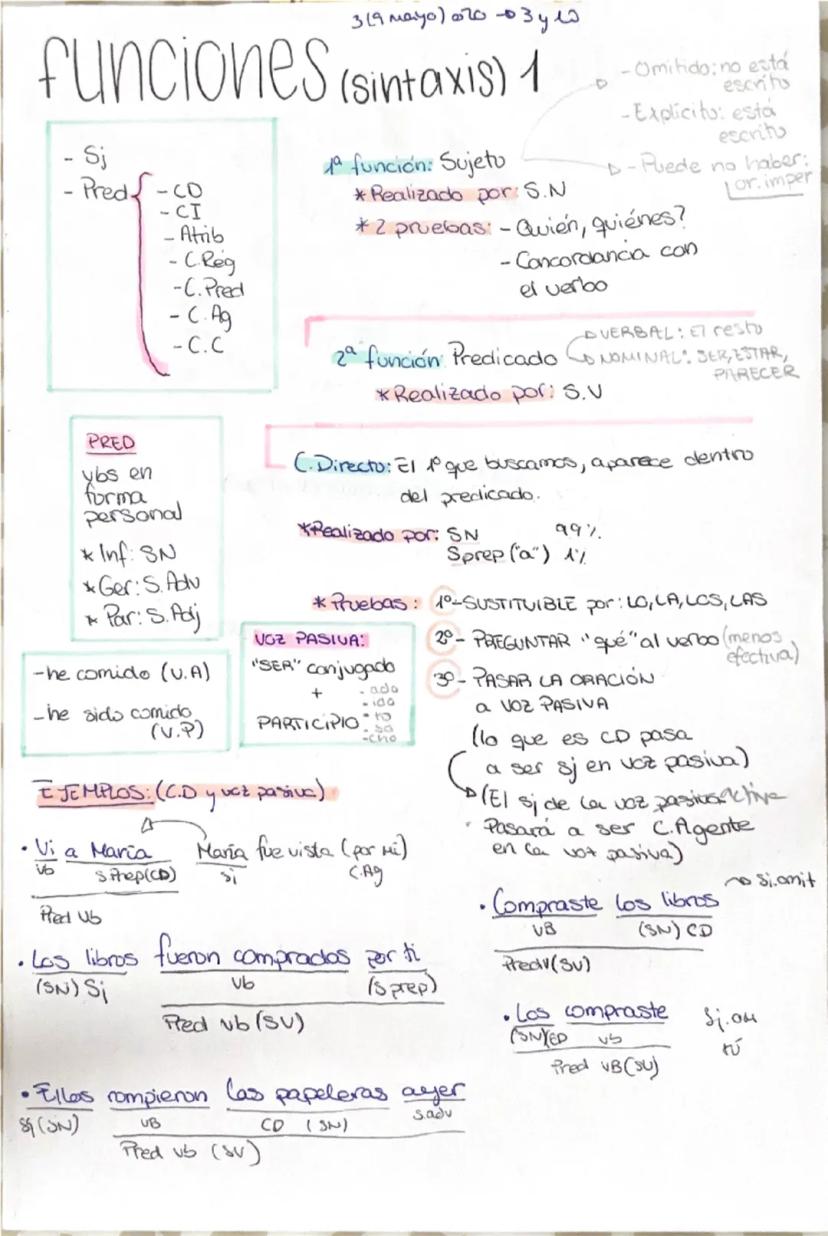 3 (9 mayo) → 3 y 10
funciones (sintaxis) 1
- Omitido: no está
escrito
- Explícito: está
escrito
- Puede no haber:
or. imper
- Sj
- Pred { - CD
- CI
- Atrib
- C.Reg
- C.Pred
- C.Ag
- C.C
1ª función: Sujeto
* Realizado por: S.N
* 2 pruebas: - Quién, quiénes?
- Concordancia con
el verbo
2ª función Predicado
VERBAL: El resto
NOMINAL: SER, ESTAR,
PARECER
* Realizado por: S.V
PRED
vbs en
forma
personal
* Inf: SN
* Ger: S.Adv
* Par: S.Adj
C.Directo: El 1º que buscamos, aparece dentro
del predicado.
* Realizado por: SN 99%
Sprep ("a") 1%
* Pruebas: 1º- SUSTITUIBLE por: LO, LA, LOS, LAS
2º- PREGUNTAR "qué" al verbo (menos
efectiva)
3º- PASAR LA ORACIÓN
a VOZ PASIVA
(lo que es CD pasa
a ser sj en voz pasiva)
→ (El sj de la voz activa
Pasará a ser C.Agente
en la voz pasiva)
- he comido (V.A)
- he sido comido
(V.P)
VOZ PASIVA:
"SER" conjugado
+
PARTICIPIO
- ado
- ido
- to
- so
- cho
EJEMPLOS: (C.D y voz pasiva)
• Vi a María María fue vista (por mi)
vb S.Prep(CD) Sj C.Ag
Pred Vb
• Los libros fueron comprados por ti
(SN) Sj Vb (Sprep)
Pred vb (SV)
• Ellos rompieron las papeleras ayer
Sj (SN) VB CD (SN) S.adv
Pred vb (SV)
→ Sj.omit
• Compraste los libros
VB (SN) CD
PredV(SV)
• Los compraste Sj.om
(SN)CD vb tú
Pred VB(SV)